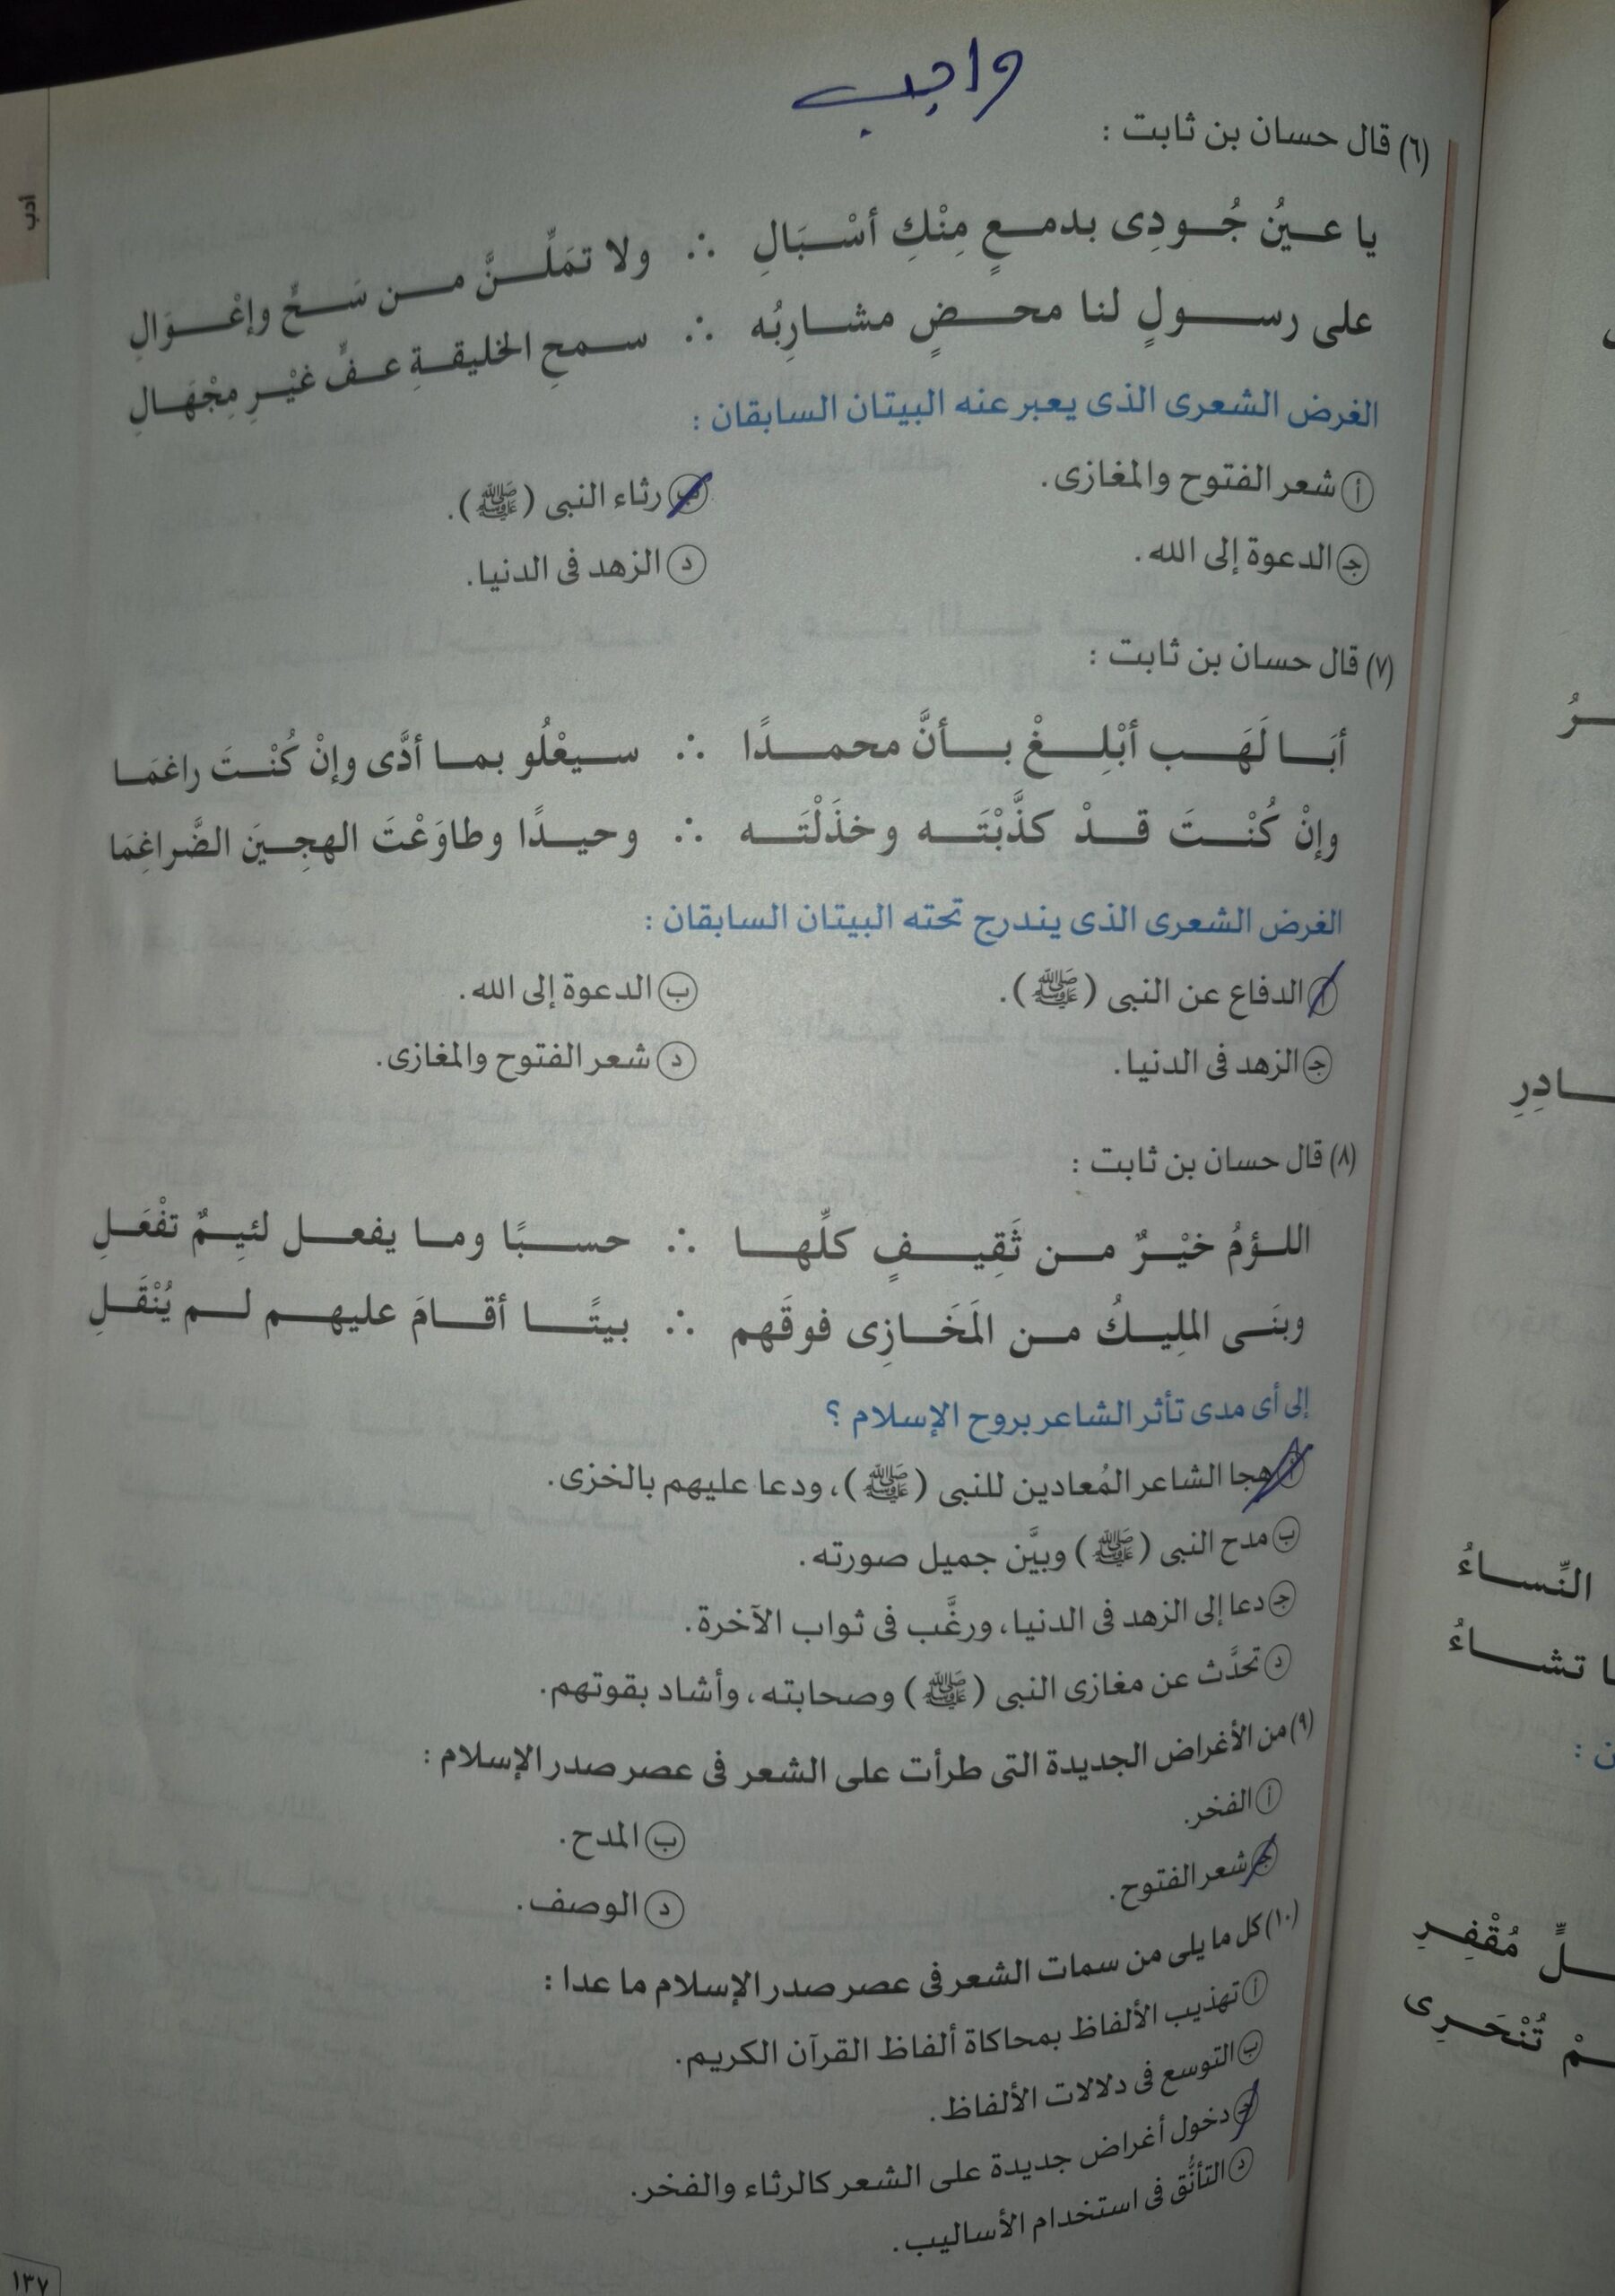 واجب
(٦) قال حسان بن ثابت :
يا عينُ جُودِى بدمعٍ مِنْكِ أسْبَالِ ∴ ولا تمَلِّنَّ من سَحٍّ وإعْوَالِ
على رسولٍ لنا محضٍ مشارِبُه ∴ سمحِ الخليقةِ عفٍّ غيْرِ مِجْهَالِ
الغرض الشعرى الذى يعبر عنه البيتان السابقان :
أ شعر الفتوح والمغازى.
ب رثاء النبى (ﷺ).
ج الدعوة إلى الله.
د الزهد فى الدنيا.
(٧) قال حسان بن ثابت :
أبَا لَهَب أبْلِغْ بأنَّ محمدًا ∴ سيعْلُو بما أدَّى وإنْ كُنْتَ راغمَا
وإنْ كُنْتَ قدْ كذَّبْتَه وخذَلْتَه ∴ وحيدًا وطاوَعْتَ الهجِينَ الضَّراغِمَا
الغرض الشعرى الذى يندرج تحته البيتان السابقان :
أ الدفاع عن النبى (ﷺ).
ب الدعوة إلى الله.
ج الزهد فى الدنيا.
د شعر الفتوح والمغازى.
(٨) قال حسان بن ثابت :
اللؤمُ خيْرٌ من ثَقِيفٍ كلِّها ∴ حسبًا وما يفعل لئيمٌ تفْعَلِ
وبنَى المليكُ من المَخَازِى فوقَهم ∴ بيتًا أقامَ عليهم لم يُنْقَلِ
إلى أى مدى تأثر الشاعر بروح الإسلام ؟
أ هجا الشاعر المُعادين للنبى (ﷺ)، ودعا عليهم بالخزى.
ب مدح النبى (ﷺ) وبيَّن جميل صورته.
ج دعا إلى الزهد فى الدنيا، ورغَّب فى ثواب الآخرة.
د تحدَّث عن مغازى النبى (ﷺ) وصحابته، وأشاد بقوتهم.
(٩) من الأغراض الجديدة التى طرأت على الشعر فى عصر صدر الإسلام :
أ الفخر.
ب المدح.
ج شعر الفتوح.
د الوصف.
(١٠) كل ما يلى من سمات الشعر فى عصر صدر الإسلام ما عدا :
أ تهذيب الألفاظ بمحاكاة ألفاظ القرآن الكريم.
ب التوسع فى دلالات الألفاظ.
ج دخول أغراض جديدة على الشعر كالرثاء والفخر.
د التأنُّق فى استخدام الأساليب.
أدب
١٣٧
النِّساءُ
تشاءُ
مُقْفِرِ
تُنْحَرِى